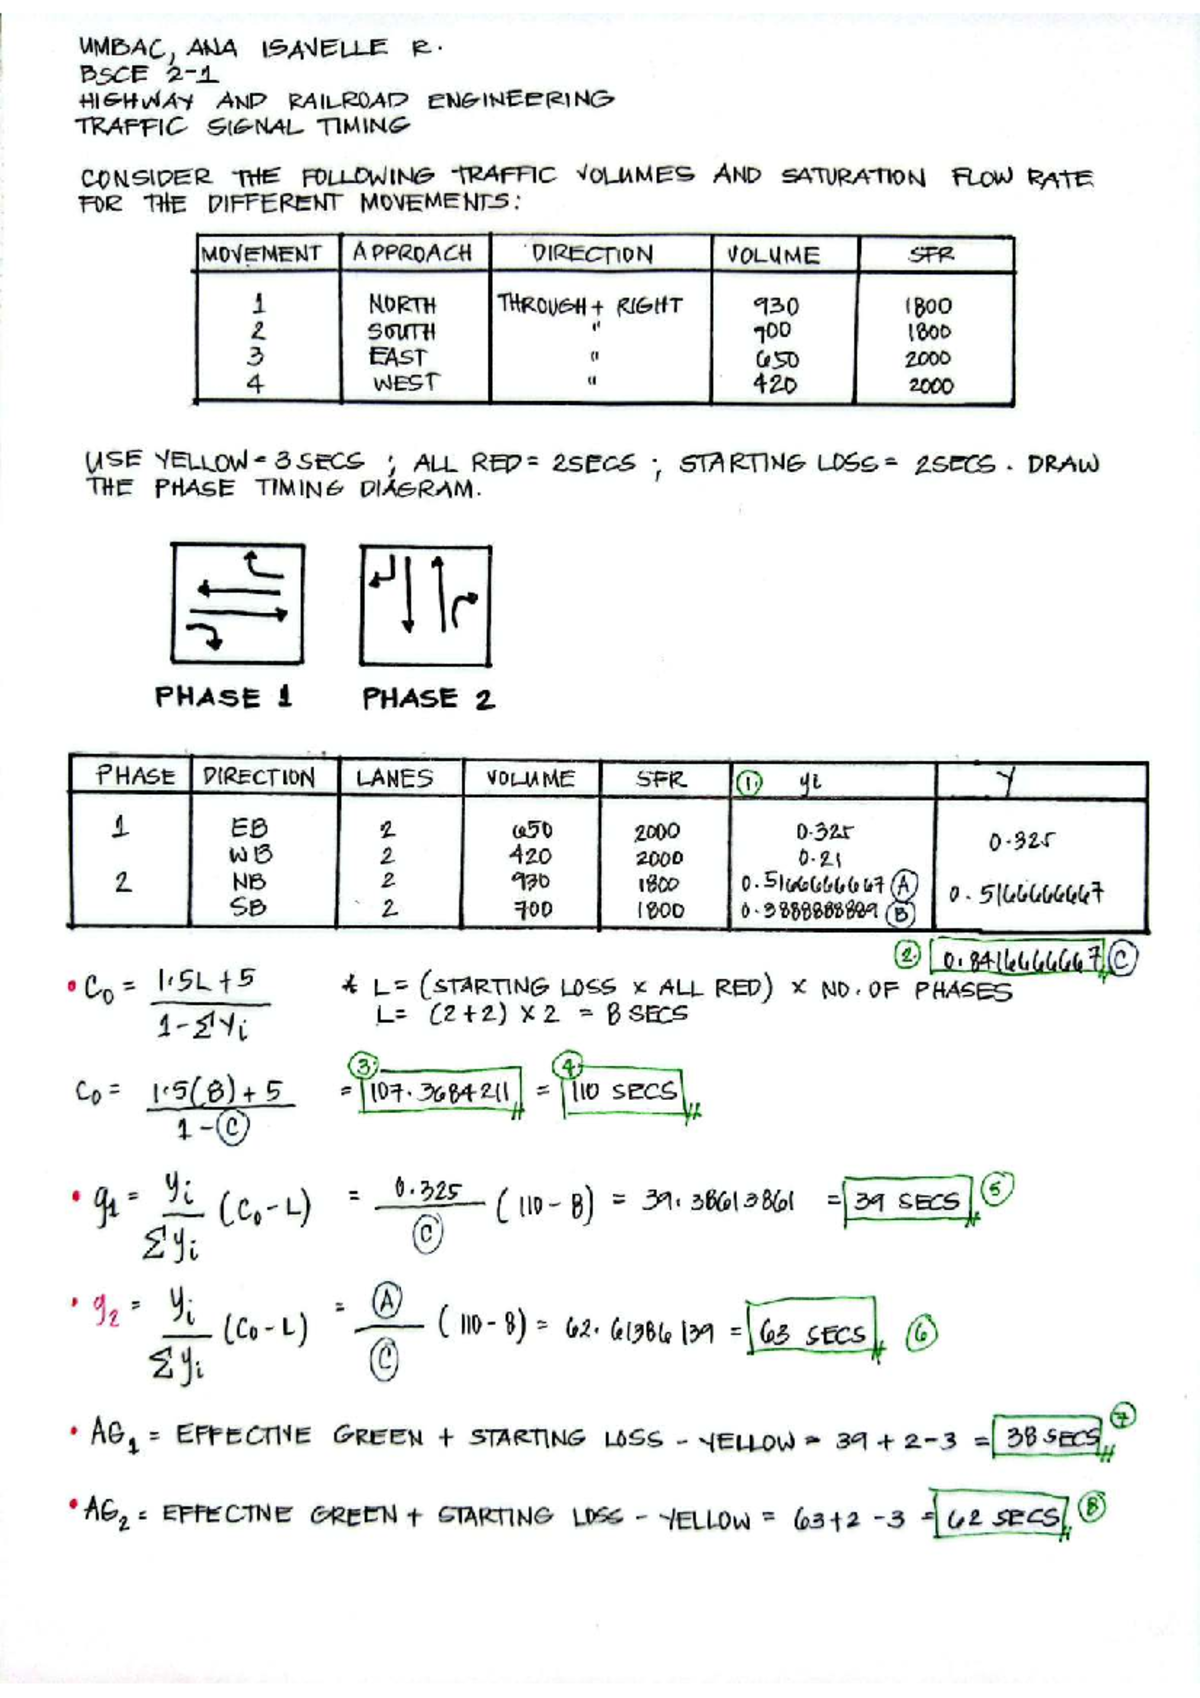 UMBAC, ANA ISAVELLE R.
BSCE 2-1
HIGHWAY AND RAILROAD ENGINEERING
TRAFFIC SIGNAL TIMING
CONSIDER THE FOLLOWING TRAFFIC VOLUMES AND SATURATION FLOW RATE
FOR THE DIFFERENT MOVEMENTS:
MOVEMENT APPROACH DIRECTION VOLUME SFR
1 NORTH THROUGH + RIGHT 930 1800
2 SOUTH " 700 1800
3 EAST " 650 2000
4 WEST " 420 2000
USE YELLOW = 3 SECS ; ALL RED = 2SECS ; STARTING LOSS = 2SECS. DRAW
THE PHASE TIMING DIAGRAM.
PHASE 1 PHASE 2
PHASE DIRECTION LANES VOLUME SFR ① yi Y
1 EB 2 650 2000 0.325 0.325
WB 2 420 2000 0.21
2 NB 2 930 1800 0.5166666667 Ⓐ 0.5166666667
SB 2 700 1800 0.3888888889 Ⓑ
② 0.8416666667 Ⓒ
• C₀ = 1.5L + 5 / 1 - ΣYi * L = (STARTING LOSS x ALL RED) x NO. OF PHASES
L = (2+2) x 2 = 8 SECS
C₀ = 1.5(8) + 5 / 1 - Ⓒ = ③ 107.3684211 = ④ 110 SECS
• g₁ = yi / Σyi (C₀ - L) = 0.325 / Ⓒ (110 - 8) = 39.38613861 = 39 SECS ⑤
• g₂ = yi / Σyi (C₀ - L) = Ⓐ / Ⓒ (110 - 8) = 62.61386139 = 63 SECS ⑥
• AG₁ = EFFECTIVE GREEN + STARTING LOSS - YELLOW = 39 + 2 - 3 = 38 SECS ⑦
• AG₂ = EFFECTIVE GREEN + STARTING LOSS - YELLOW = 63 + 2 - 3 = 62 SECS ⑧